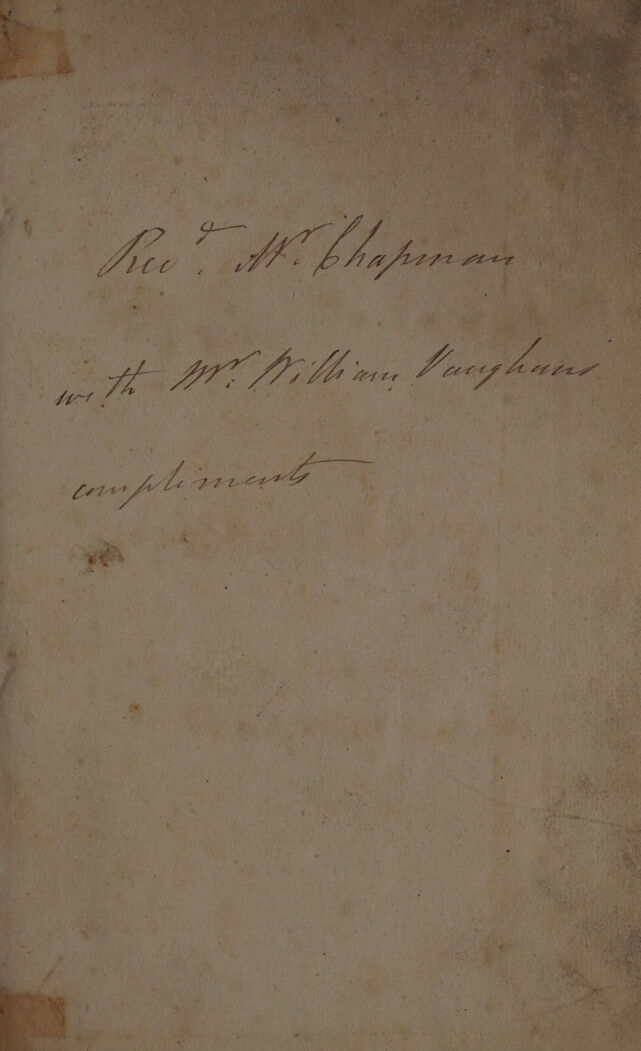 Revd. Mr. Chapman
with Mr. William Vaughans
compliments